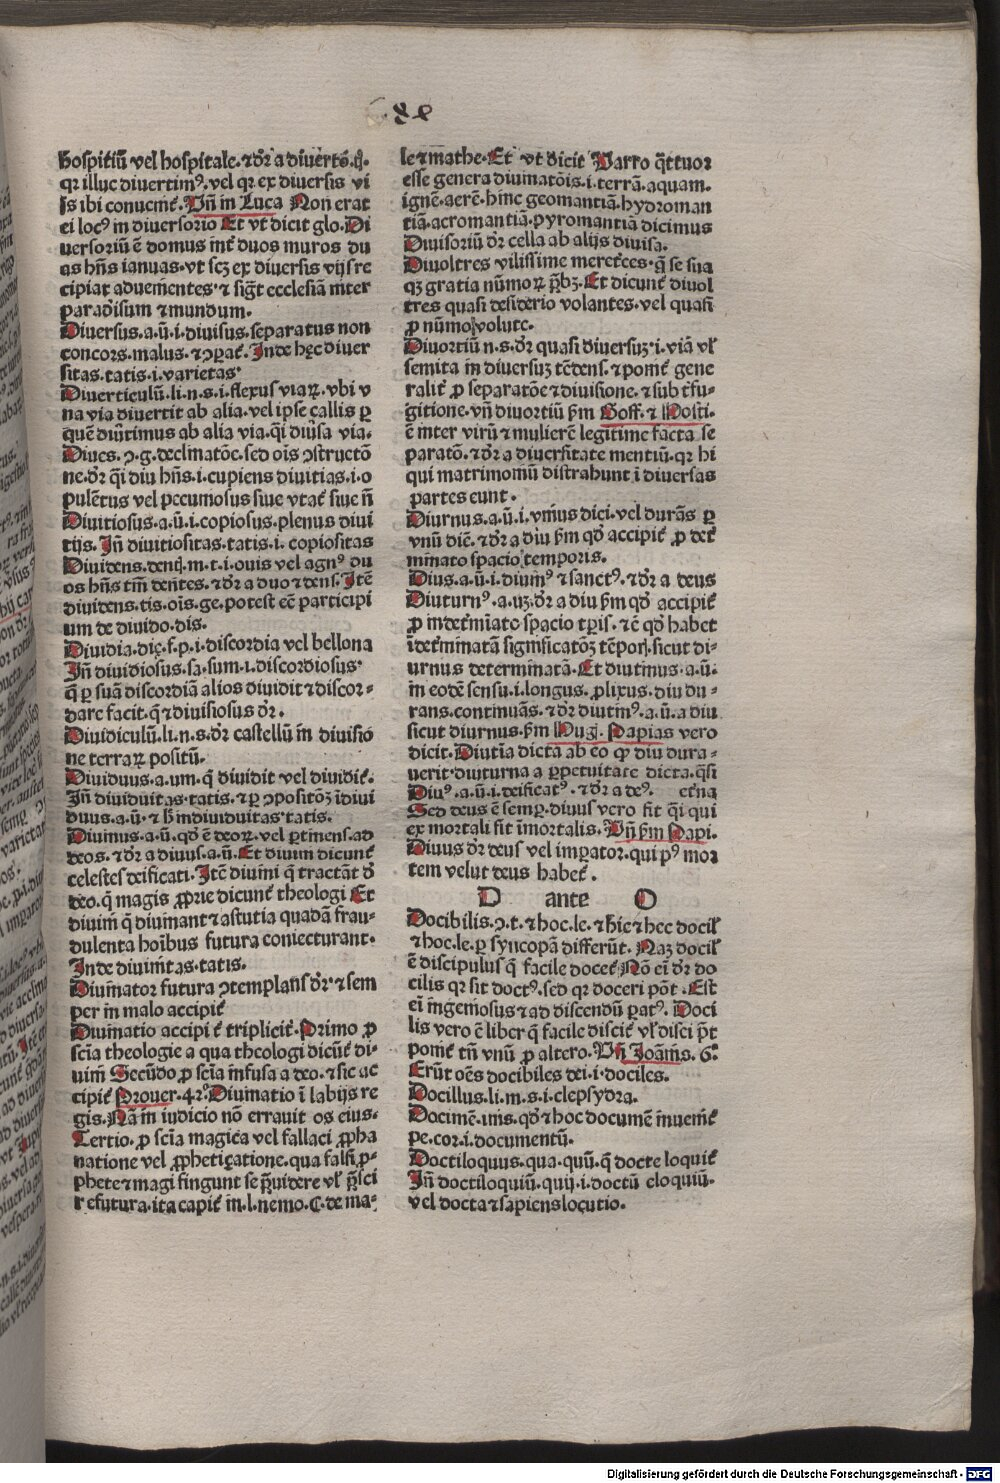 hospitiū vel hospitale·⁊dr̄ a diuerto.is.
qꝛ illuc diuertimꝰ.vel qꝛ ex diuersis vi
is ibi conueniūt. Vn̄ in Luca Non erat
ei locꝰ in diuersorio Et vt dicit glo.Di
uersoriū ē domus int̄ duos muros du
as hn̄s ianuas·vt scꝫ ex diuersis vijs re
cipiat aduenientes·⁊ sigt̄ ecclesiā inter
paradisum ⁊ mundum.
Diuersus.a.ū.i.diuisus.separatus non
concors.malus.⁊ ꝯparat̄. Inde hęc diuer
sitas.tatis.i.varietas·
Diuerticulū.li.n.s.i.flexus viaꝝ.vbi v
na via diuertit ab alia.vel ipse callis ꝑ
quē diūtimus ab alia via.q̄i diūsa via.
Diues.ꝯ.g.declinatōe.sed ois ꝯstructō
ne.dr̄ q̄i diu hn̄s.i.cupiens diuitias.i.o
pulētus vel pecuniosus siue vtat̄ siue n̄
Diuitiosus.a.ū.i.copiosus.plenus diui
tijs. In̄ diuitiositas.tatis.i.copiositas
Diuidens.denti.m.t.i.ouis vel agnꝰ du
os hn̄s tm̄ dentes.⁊ dr̄ a duo ⁊ dens. Itē
diuidens.tis.ois.ge.potest eē participi
um de diuido.dis.
Diuidia.dię.f.p.i.discordia vel bellona
In̄ diuidiosus.sa.sum.i.discordiosus·
q̄ ꝑ suā discordiā alios diuidit ⁊ discor-
dare facit.q̄ ⁊ diuisiosus dr̄.
Diuidiculū.li.n.s.dr̄ castellū in diuisio
ne terraꝝ positū.
Diuiduus.a.um.q̄ diuidit vel diuidit̄.
In̄ diuiduitas.tatis.⁊ ꝑ ꝯpositōꝫ īdiui
duus.a.ū.⁊ h̄ indiuiduitas·tatis.
Diuinus.a.ū.qd̄ ē deoꝝ.vel ꝑtinens.ad
deos.⁊ dr̄ a diuus.a.ū. Et diuini dicunt̄
celestes deificati. Itē diuini q̄ tractant d̄
deo.q̄ magis ꝓprie dicunt̄ theologi Et
diuini q̄ diuinant ⁊ astutia quadā frau-
dulenta hoībus futura coniecturant.
Inde diuinitas.tatis.
Diuinator futura ꝯtemplans dr̄·⁊ sem
per in malo accipit̄
Diuinatio accipit̄ triplicit̄. Primo ꝓ
scīa theologie a qua theologi dicūt̄ di-
uini Secūdo ꝓ scīa infusa a deo.⁊ sic ac
cipit̄ Prouer.42°.Diuinatio ī labijs re
gis.Nā in iudicio nō errauit os eius-
Tertio.ꝓ scīa magica vel fallaci ꝓpha
natione vel ꝓphetiçatione.qua falsi ꝓ-
phete ⁊ magi fingunt se p̄uidere vl̓ p̄sci
re futura.ita capit̄ in.l.nemo.C.de ma-
le ⁊ mathe·Et vt dicit Varro q̄ttuor
esse genera diuinatōis.i.terrā.aquam.
ignē.aerē.hinc geomantiā.hydroman
tiā.acromantiā.pyromantiā dicimus
Diuisoriū dr̄ cella ab alijs diuisa.
Diuoltres vilissime meretrices.q̄ se sua
qꝫ gratia nūmoꝝ p̄bꝫ.Et dicunt̄ diuol
tres quasi desiderio volantes.vel quasi
ꝓ nūmo volute.
Diuortiū n.s.dr̄ quasi diuersuꝫ·i.viā vl̓
semita in diuersuꝫ tēdens.⁊ ponit̄ gene
ralit̄ ꝓ separatōe ⁊ diuisione.⁊ sub tr̄fu-
gitione.vn̄ diuortiū ẜm Goff.⁊ Hosti.
ē inter virū ⁊ mulierē legitime facta se
paratō.⁊ dr̄ a diuersitate mentiū.qꝛ hi
qui matrimoniū distrahunt ī diuersas
partes eunt.
Diurnus.a.ū.i.vniꝰ diei.vel durās ꝑ
vnū diē.⁊ dr̄ a diu ẜm qd̄ accipit̄ ꝓ det̄
minato spacio temporis.
Dius.a.ū.i.diuinꝰ ⁊ sanctꝰ.⁊ dr̄ a deus
Diuturnꝰ.a.uꝫ.dr̄ a diu ẜm qd̄ accipit̄
ꝓ indet̄miato spacio tꝑis.⁊ ē qd̄ habet
īdet̄minatā significatōꝫ tēporꝭ.sicut di-
urnus determinatā.Et diutinus.a.ū.
in eodē sensu.i.longus.ꝓlixus.diu du-
rans.continuās.⁊ dr̄ diutinꝰ.a.ū.a diu
sicut diurnus.ẜm Hug. Papias vero
dicit.Diutia dicta ab eo qꝫ diu dura-
uerit diuturna a ꝑpetuitate dicta.q̄si
Diuꝰ.a.ū.i.deificatꝰ.⁊ dr̄ a deꝰ. et̄na
Sed deus ē semꝑ.diuus vero fit q̄i qui
ex mortali fit īmortalis. Vn̄ ẜm Papi.
Diuus dr̄ deus vel imꝑator.qui pꝰ mor
tem velut deus habet̄.
D ante O
Docibilis.ꝯ.t.⁊ hoc.le.⁊ hic ⁊ hec docil̓
⁊ hoc.le.ꝑ syncopā differūt. Naꝫ docil̓
ē discipulus q̄ facile docet̄ Nō eī dr̄ do
cilis qꝛ sit doctꝰ.sed qꝛ doceri pōt. Est
eī ingeniosus ⁊ ad discendū ꝑatꝰ. Doci
lis vero ē liber q̄ facile discit̄ vl̓ disci p̄t
ponit̄ tn̄ vnū ꝓ altero. Vn̄ Joānis. 6.°
Erūt oēs docibiles dei.i.dociles.
Docillus.li.m.s.i.clepsydra.
Docimē.inis.qd̄ ⁊ hoc documē inuenit̄
pe.cor.i.documentū.
Doctiloquus.qua.quū.q̄ docte loquit̄
In̄ doctiloquiū.quij.i.doctū eloquiū.
vel docta ⁊ sapiens locutio.
Digitalisierung gefördert durch die Deutsche Forschungsgemeinschaft - DFG